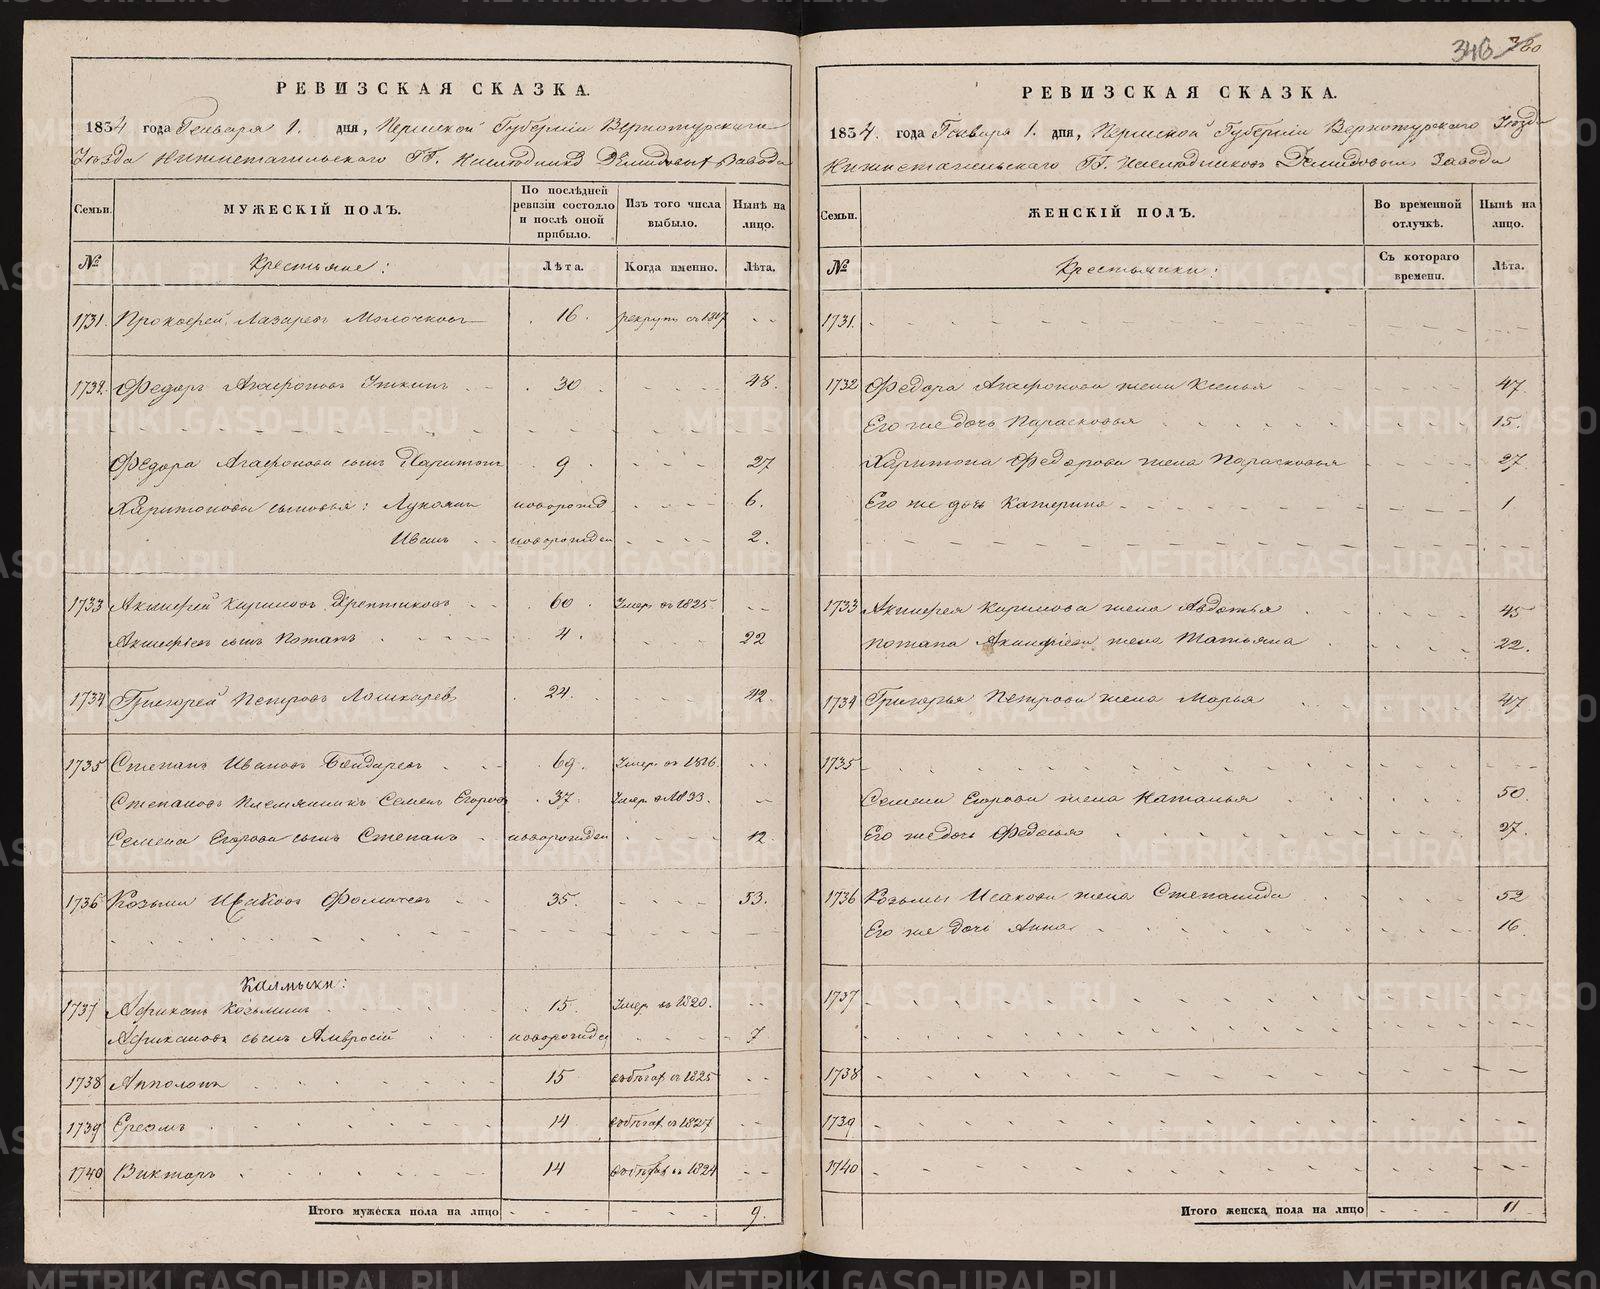 346 360
РЕВИЗСКАЯ СКАЗКА.
1834 года Генваря 1. дня, Пермской Губернiи Верхотурскаго
Уѣзда Нижнетагильскаго ГГ. Наслѣдниковъ Демидовыхъ Завода
Семьи. МУЖЕСКIЙ ПОЛЪ. По послѣдней ревизiи состояло и послѣ оной прибыло. Изъ того числа выбыло. Нынѣ на лицо.
№ Крестьяне: Лѣта. Когда именно. Лѣта.
1731. Прокофей Лазаревъ Молочковъ 16. рекрутъ съ 1817
1732. Федоръ Агафоновъ Уткинъ 30 48.
Федора Агафонова сынъ Харитонъ 9 27
Харитоновы сыновья: Лукоянъ новорожд 6.
Иванъ новорожден 2.
1733 Акинфей Кириловъ 60 Умер. въ 1825.
Акинфiевъ сынъ Потапъ 4. 22
1734 Григорей Петровъ Лошкаревъ 24. 42.
1735 Степанъ Ивановъ Бондаревъ 69. Умер. въ 1826.
Степановъ племянникъ Семенъ Егоровъ 37. Умер. в 1833.
Семена Егорова сынъ Степанъ новорожден 12.
1736 Козьма Исаковъ 35. 53.
Калмыки:
1737 Африканъ Козьминъ 15. Умер. въ 1820.
Африкановъ сынъ Амвросiй новорожден 7
1738 Апполонъ 15 въ бѣгах съ 1825
1739 Еразмъ 14 въ бѣгах съ 1827
1740 Викторъ 14 въ бѣгах съ 1824
Итого мужеска пола на лицо 9.
РЕВИЗСКАЯ СКАЗКА.
1834. года Генваря 1. дня, Пермской Губернiи Верхотурскаго Уѣзда
Нижнетагильскаго ГГ. Наслѣдниковъ Демидовыхъ Завода
Семьи. ЖЕНСКIЙ ПОЛЪ. Во временной отлучкѣ. Нынѣ на лицо.
№ Крестьянки: Съ котораго времени. Лѣта.
1731.
1732 Федора Агафонова жена Ксенья 47
Его же дочь Парасковья 15.
Харитона Федорова жена Парасковья 27
Его же дочь Катерина 1
1733 Акинфея Кирилова жена Авдотья 45
Потапа Акинфiева жена Татьяна 22.
1734 Григорья Петрова жена Марья 47
1735
Семена Егорова жена Наталья 50.
Его же дочь Федосья 27.
1736 Козьмы Исакова жена Степанида 52
Его же дочь Анна 16
1737
1738
1739
1740
Итого женска пола на лицо 11
METRIKI.GASO-URAL.RU